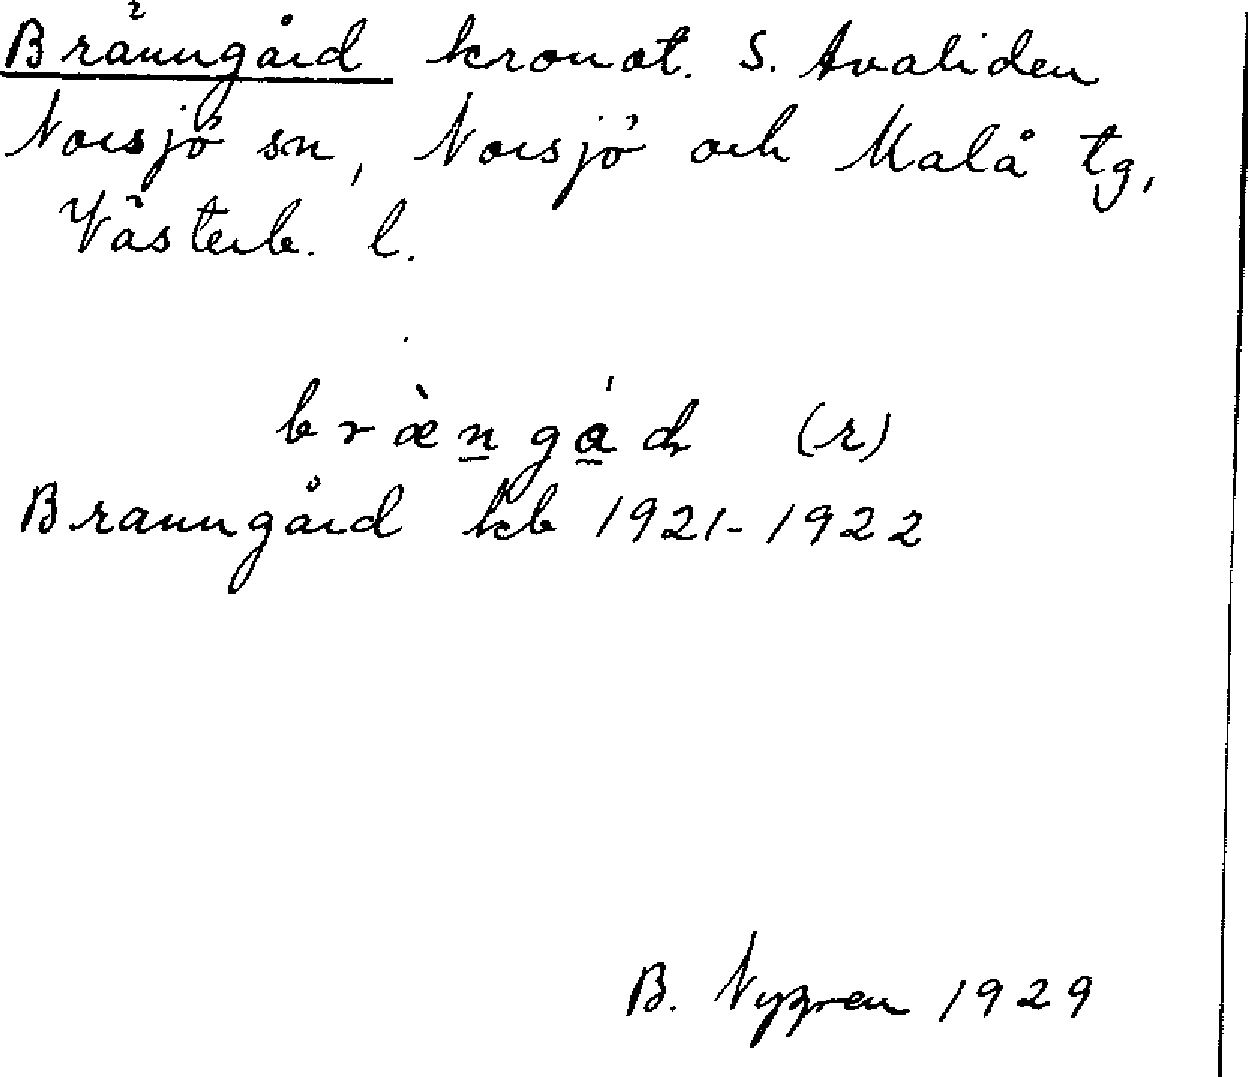 Bränngård kronot. S. Avaliden
Norsjö sn, Norsjö och Malå tg,
Västerb. l.
bræ̀ngád (r)
Brännngård kb 1921-1922
B. Nygren 1929